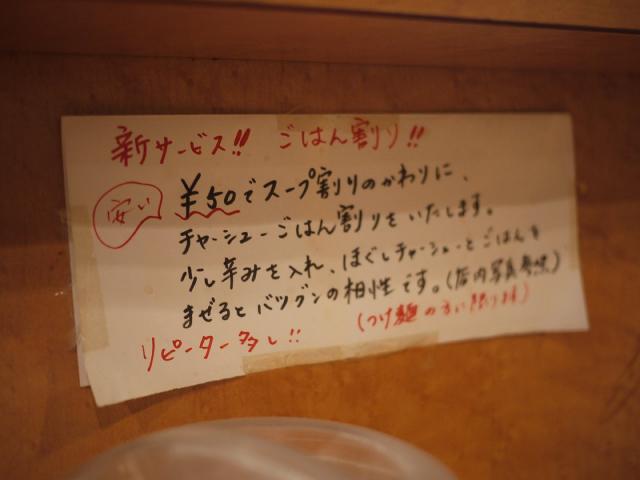 新サービス!! ごはん割り!!
安い
¥50でスープ割りのかわりに、
チャーシューごはん割りをいたします。
少し辛みを入れ、ほぐしチャーシューとごはんを
まぜるとバツグンの相性です。(店内写真参照)
(つけ麺の方に限ります)
リピーター多し!!